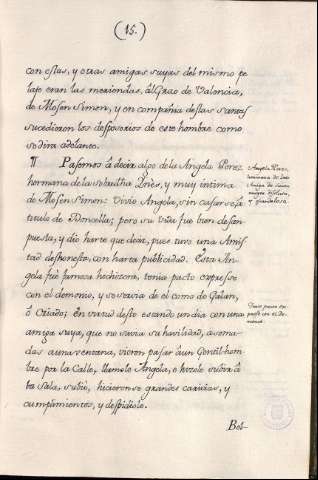 (15.)
con estas, y otras amigas suyas del mismo pe
lajo eran las meriendas, al Grao de Valencia,
de Mosen Simon; y en compañia destas santas
sucedieron los desposorios de este hombre como
se dira adelante.
Pasemos à decir algo de la Angela Perez
hermana de la sobredha Ynes, y muy intima
de Mosen Simon: Vivio Angela, sin casarse, à
titulo de Doncella; pero su vida fue bien descom
puesta, y dio harto que decir, pues tuvo una Amis
tad deshonesta, con harta publicidad. Esta An
gela fue famosa hechicera, tenia pacto expreso
con el demonio, y se servia de el como de Galan,
ò Criado; En virtud deste estando un dia con una
amiga suya, que no savia su havilidad, asoma
das a una ventana, vieron pasar à un Gentil hom
bre por la Calle, llamolo Angela, e hizole subir à
la Sala, subio, hicieronse grandes caricias, y
cumplimientos, y despidiole.
Bol-
Angela Perez
hermana de Ynes
amiga de Simon
Tenia pacto ex
preso con el De
monio.